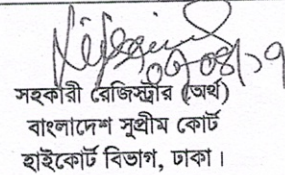 সহকারী রেজিস্ট্রার (অর্থ)
বাংলাদেশ সুপ্রীম কোর্ট
হাইকোর্ট বিভাগ, ঢাকা।